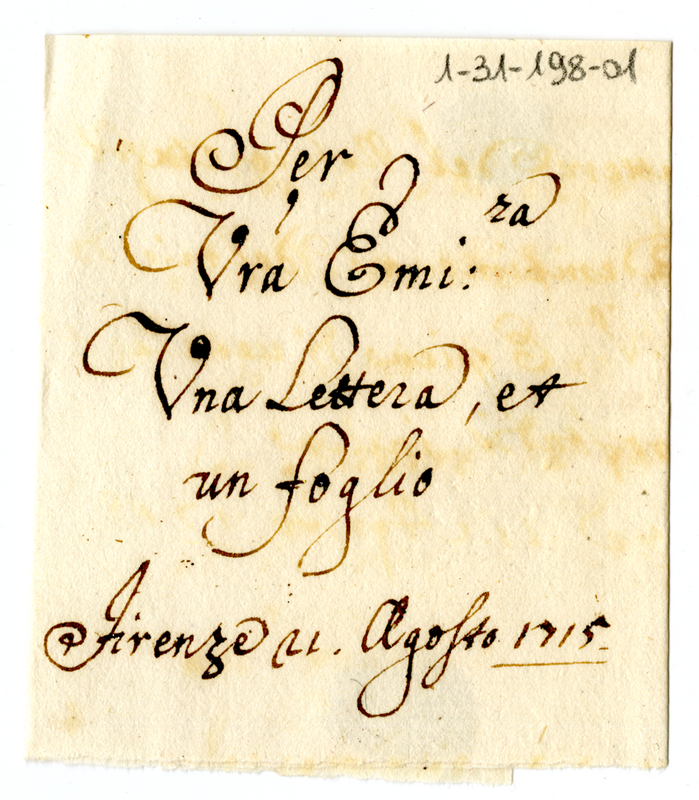 1-31-198-01
Per
Vra Emi:za
Una Lettera, et
un foglio
Firenze 21. Agosto 1715